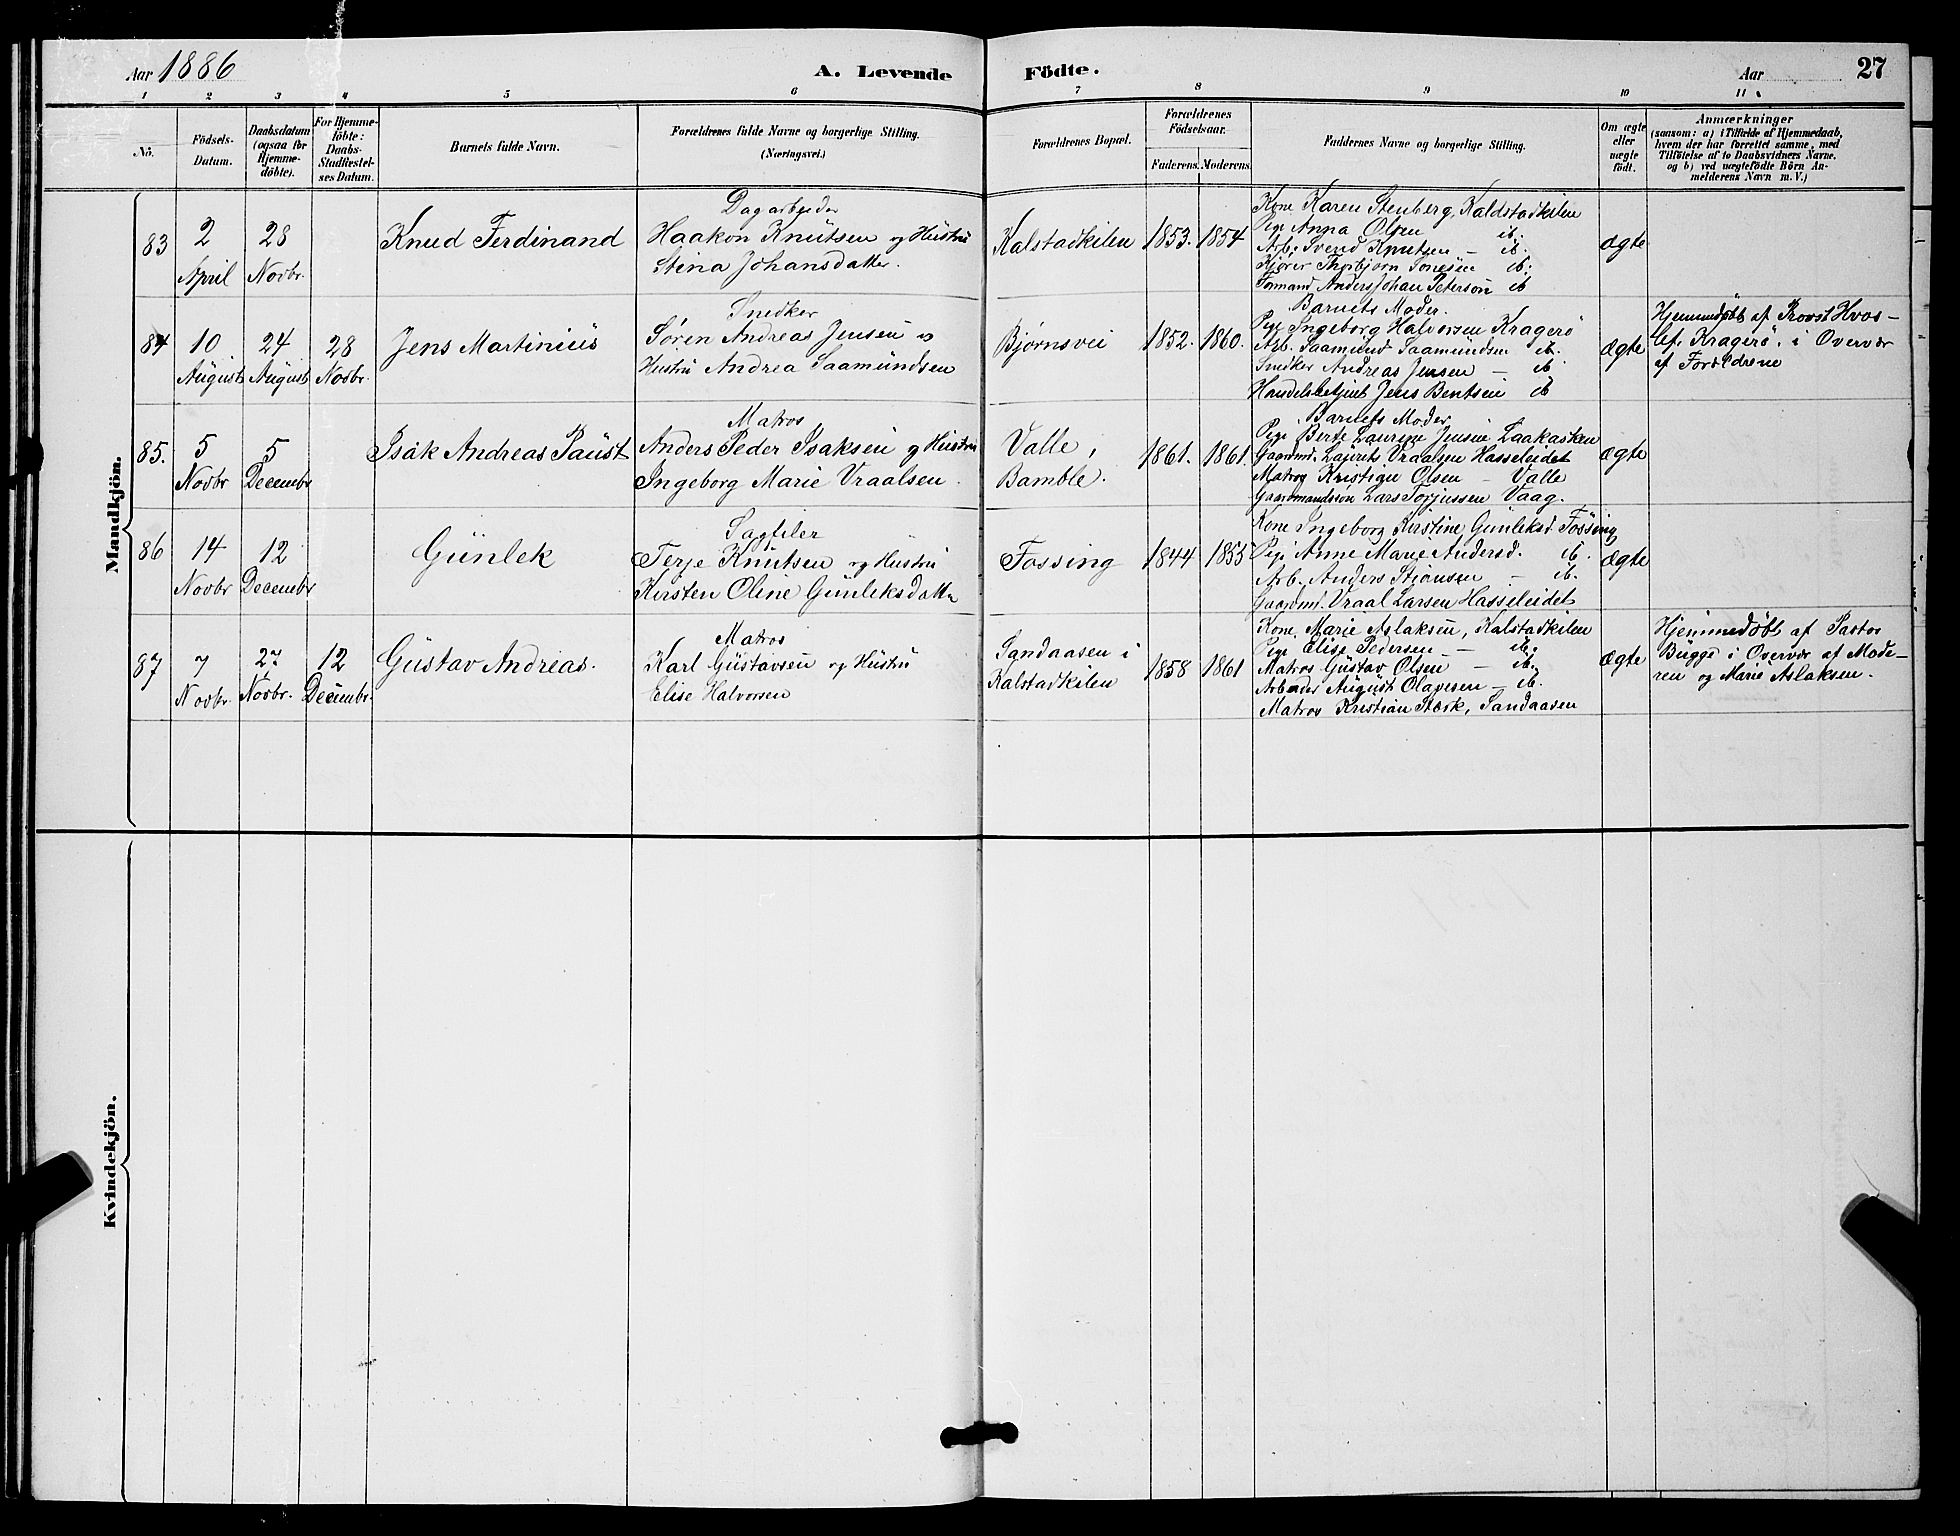 Aar 1886
A. Levende Födte.
Aar
27
1 2 3 4 5 6 7 8 9 10 11
No.
Födsels-
Datum.
Daabsdatum
(ogsaa for
Hjemme-
döbte).
For Hjemme-
föbte:
Daabs-
Stadfæstel-
ses Datum.
Barnets fulde Navn.
Forældrenes fulde Navne og borgerlige Stilling.
(Næringsvei.)
Forældrenes Bopæl.
Forældrenes
Födselsaar.
Faderens. Moderens.
Faddernes Navne og borgerlige Stilling.
Om ægte
eller
uægte
födt.
Anmærkninger
(saasom: a) i Tilfælde af Hjemmedaab,
hvem der har forrettet samme, med
Tilföielse af to Daabsvidners Navne,
og b) ved uægtefödte Börn An-
melderens Navn m. V.)
Mandkjön.
83
2
April
28
Novbr.
Knud Ferdinand
Dagarbeider
Haakon Knutsen og Hustru
Stina Johansdatter.
Kalstadkilen
1853. 1854
Kone Karen Stenberg, Kaldstadkilen
Pige Anna Olsen ib.
Arb. Svend Knutsen – ib.
Kjører Thorbjørn Tonesen ib.
Formand Anders Johan Peterson ib
ægte
84
10
August
24
August
28
Novbr.
Jens Martinius
Snedker
Søren Andreas Jensen og
Hustru Andrea Saamundsen
Bjørnsvei
1852. 1860.
Barnets Moder.
Pige Ingeborg Halvorsen Kragerø
Arb. Saamund Saamundsen ib.
Snedker Andreas Jensen – ib
Handelsbetjent Jens Bentsen ib
ægte
Hjemmedøbt af Provst Hvos-
lef, Kragerö, i Overvær
af Forældrene
85.
5
Novbr
5
Decembr
Isak Andreas Paust
Matros
Anders Peder Isaksen og Hustru
Ingeborg Marie Vraalsen.
Valle,
Bamble.
1861. 1861.
Barnets Moder
Pige Berte Laurine Jensine Laakasken
Gaardmd. Laurets Vraalsen Hasseleidet
Matros Kristian Olsen – Valle
Gaardmandssøn Lars Torjussen Vaag.
ægte
86
14
Novbr
12
Decembr
Gunlek
Sagfiler
Terje Knutsen og Hustru
Kirsten Oline Gunleksdatter
Fossing
1844 1855
Kone Ingeborg Kirstine Gunleksd. Fössing
Pige Anne Marie Andersd. ib.
Arb. Anders Stiansen – ib.
Gaardmd. Vraal Larsen Hasseleidet
ægte
87
7
Novbr.
27
Novbr.
12
Decembr.
Gustav Andreas.
Matros
Karl Gustavsen og Hustru
Elise Halvorsen
Sandaasen i
Kalstadkilen
1858 1861
Kone Marie Aslaksen, Kalstadkilen
Pige Elise Pedersen – ib.
Matros Gustav Olsen – ib.
Arbeider August Olavesen – ib.
Matros Kristian Stærk, Sandaasen
ægte
Hjemmedøbt af Pastor
Bugge i Overvær af Mode-
ren og Marie Aslaksen.
Kvindekjön.